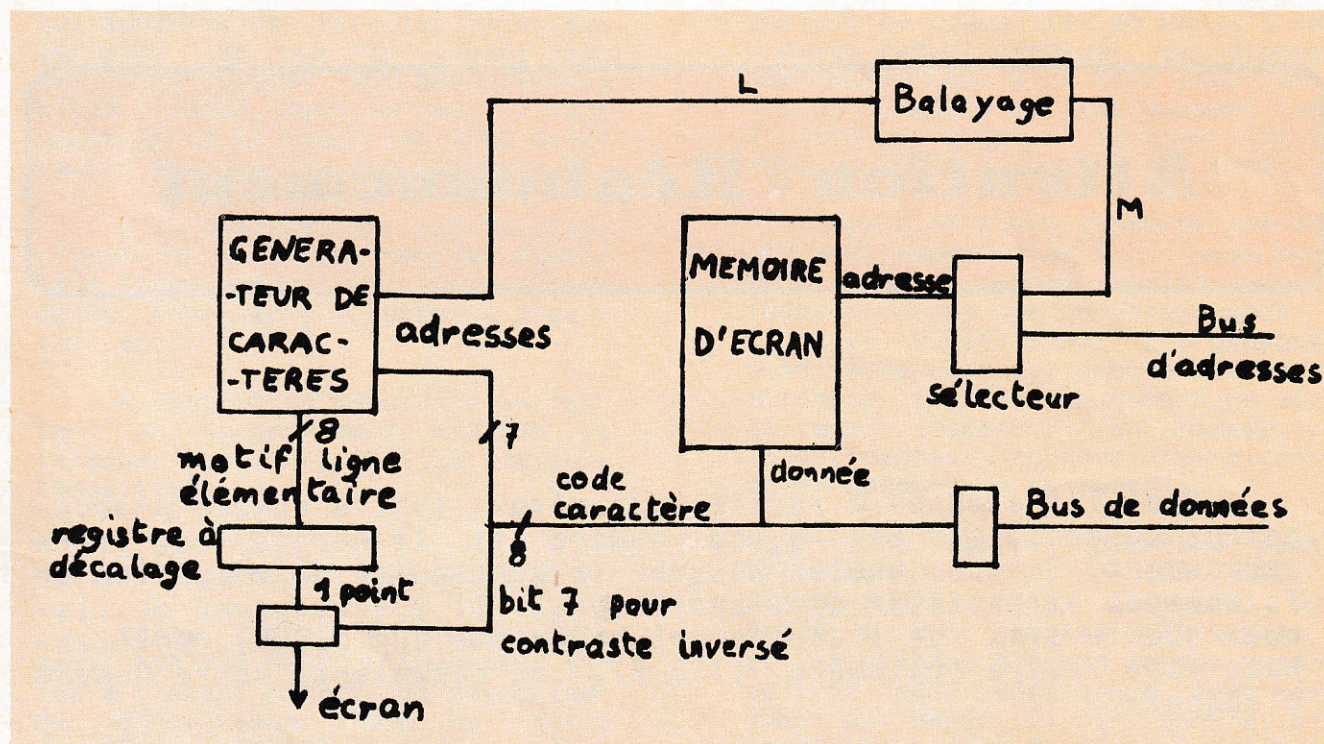 L
Balayage
M
GENERA-
-TEUR DE
CARAC-
-TERES
adresses
MEMOIRE
D'ECRAN
adresse
Bus
d'adresses
sélecteur
8
7
motif ligne
élémentaire
code
caractère
donnée
8
Bus de données
registre à
décalage
1 point
bit 7 pour
contraste inversé
écran